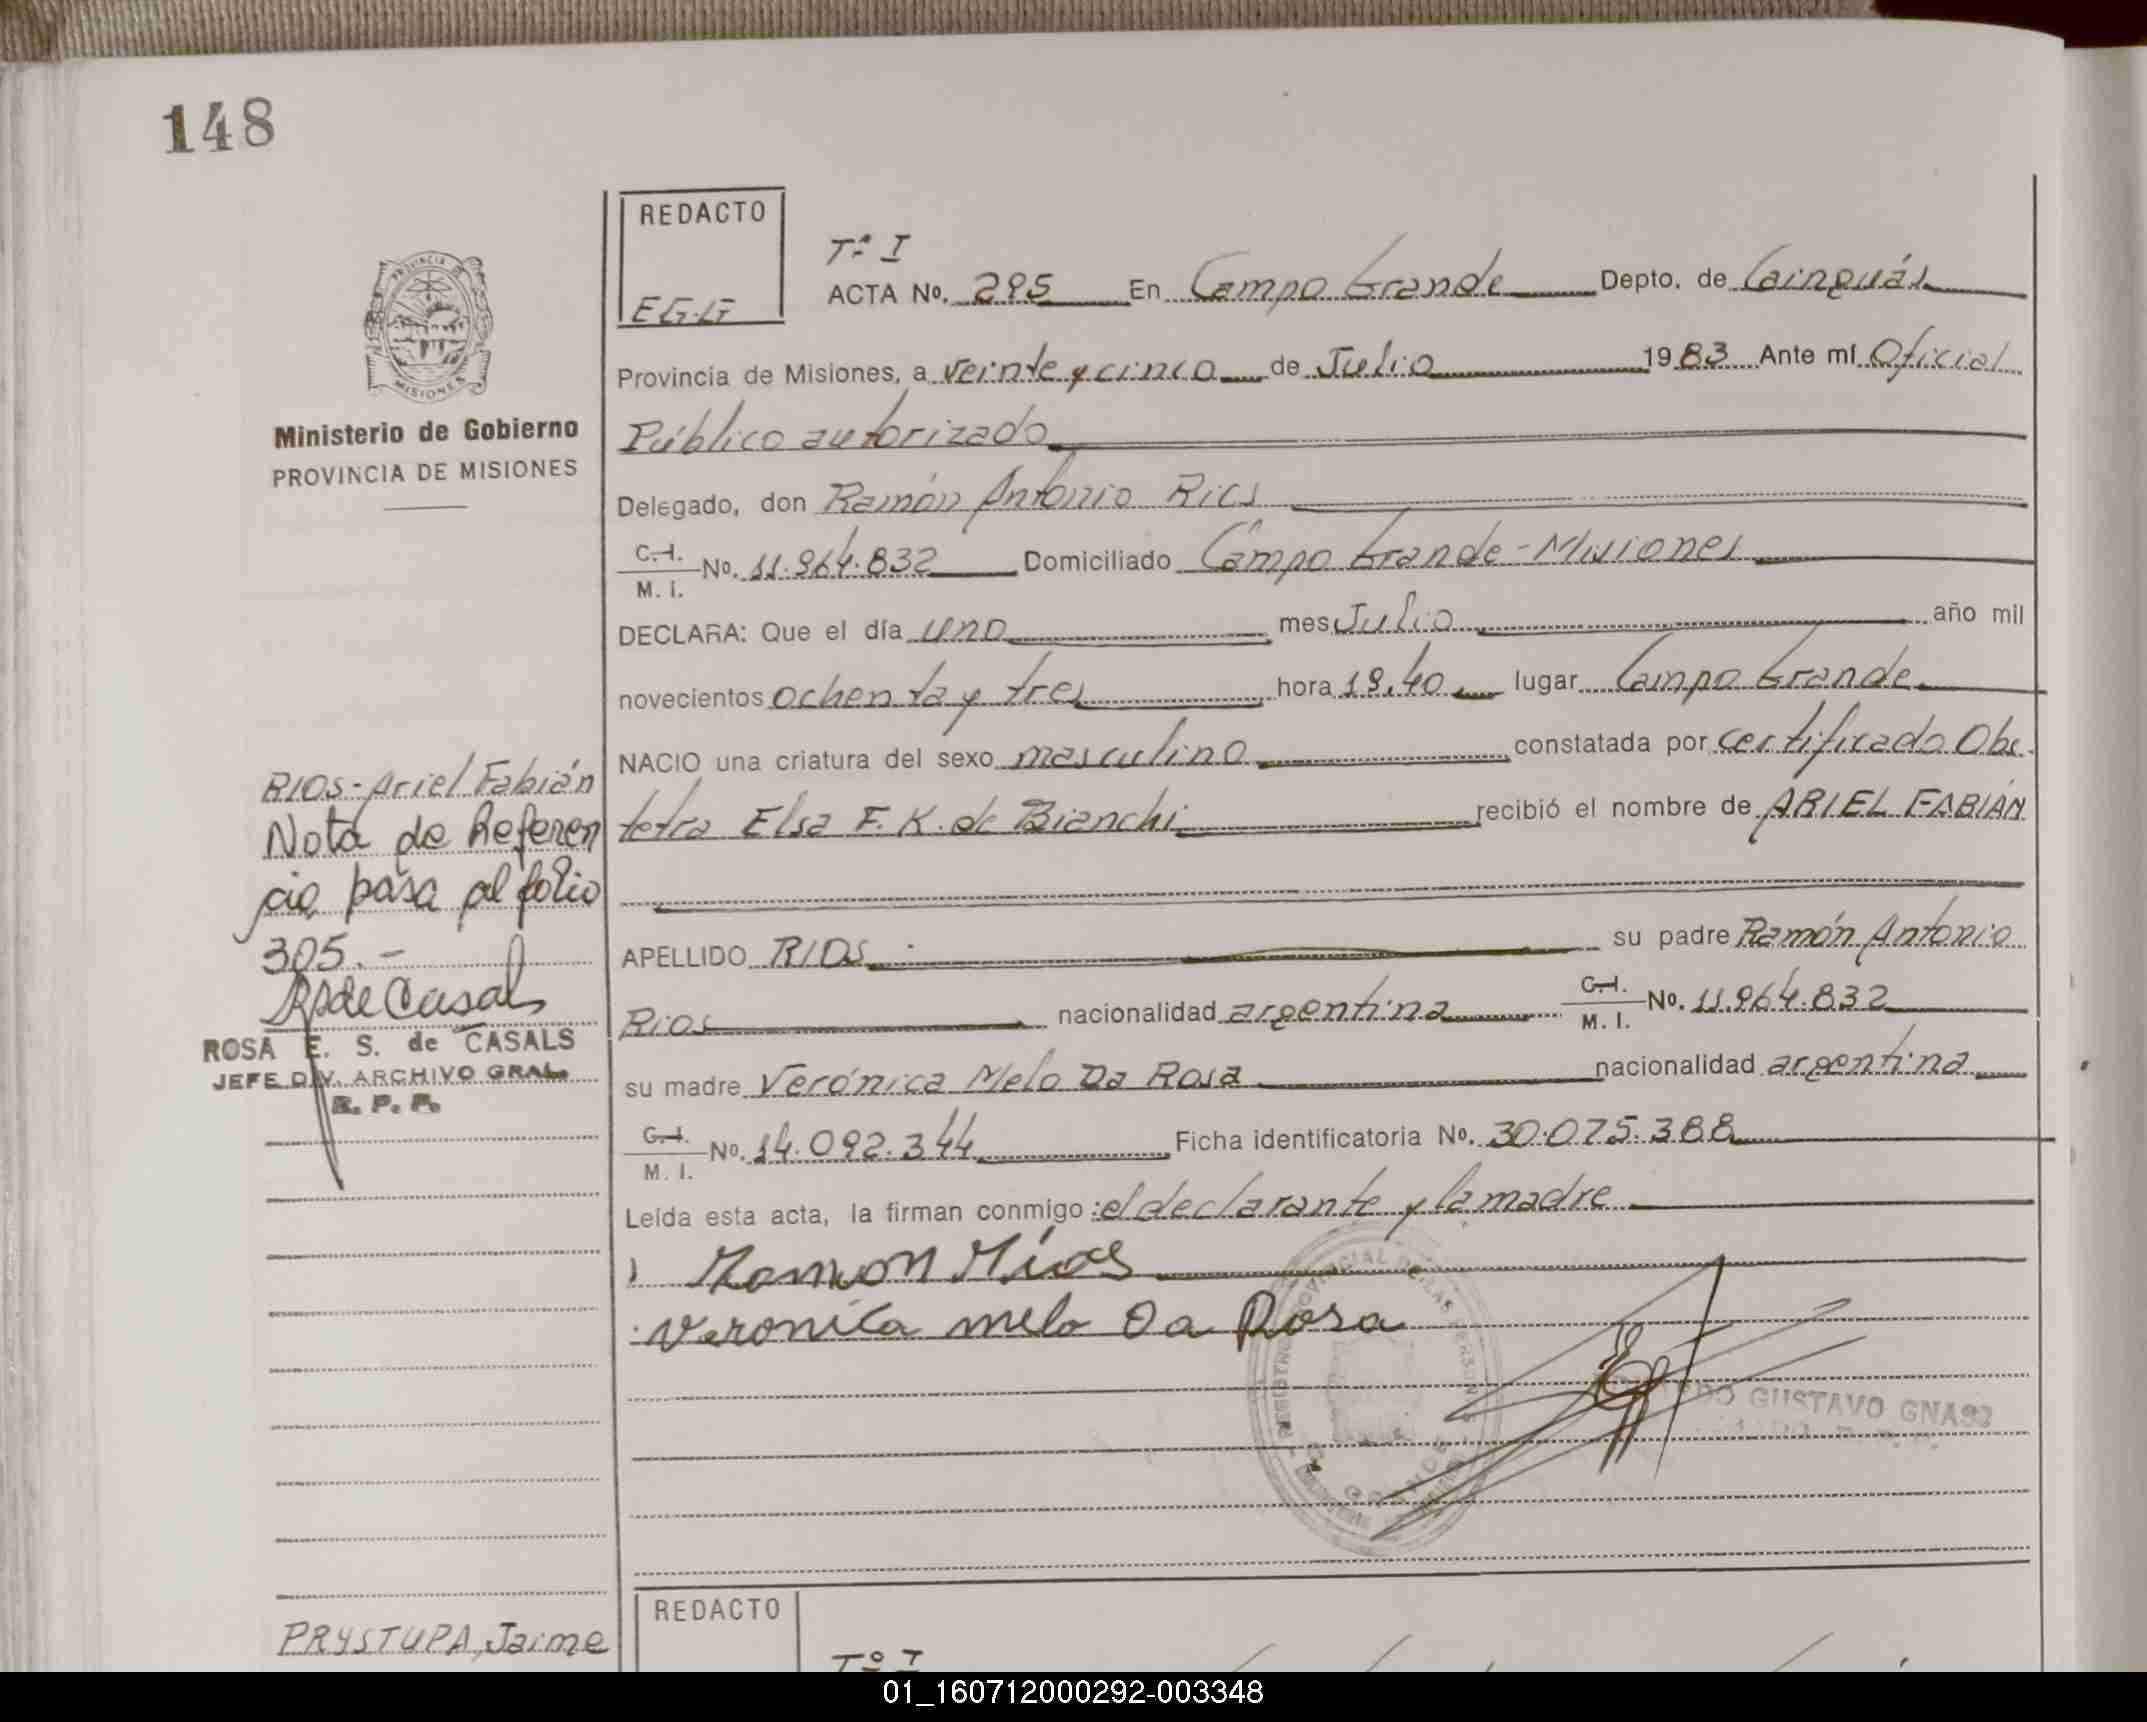 148
REDACTO
EG.G
Tº I
ACTA No. 295 En Campo Grande Depto. de Cainguás
PROVINCIA DE
MISIONES
Provincia de Misiones, a veinte y cinco de Julio 1983 Ante mí Oficial
Ministerio de Gobierno
PROVINCIA DE MISIONES
Público autorizado
Delegado, don Ramón Antonio Rios
C.I.
M. I. No. 11.964.832 Domiciliado Campo Grande - Misiones
DECLARA: Que el día uno mes Julio año mil
novecientos ochenta y tres hora 19,40 lugar Campo Grande
NACIO una criatura del sexo masculino constatada por certificado Obs.
tetra Elsa F. K. de Bianchi recibió el nombre de ARIEL FABIÁN
APELLIDO RIOS su padre Ramón Antonio
Rios nacionalidad argentina C.I. M. I. No. 11.964.832
su madre Verónica Melo Da Rosa nacionalidad argentina
C.I.
M. I. No. 14.092.344 Ficha identificatoria No. 30.075.388
Leída esta acta, la firman conmigo: el declarante y la madre
Ramon Ríos
Veronica melo Da Rosa
GUSTAVO GNASS
RIOS - Ariel Fabián
Nota de Referen
cia pasa al folio
305.-
RSdeCasals
ROSA E. S. de CASALS
JEFE DIV. ARCHIVO GRAL.
R. P. P.
PRYSTUPA, Jaime
REDACTO
Tº I
01_160712000292-003348